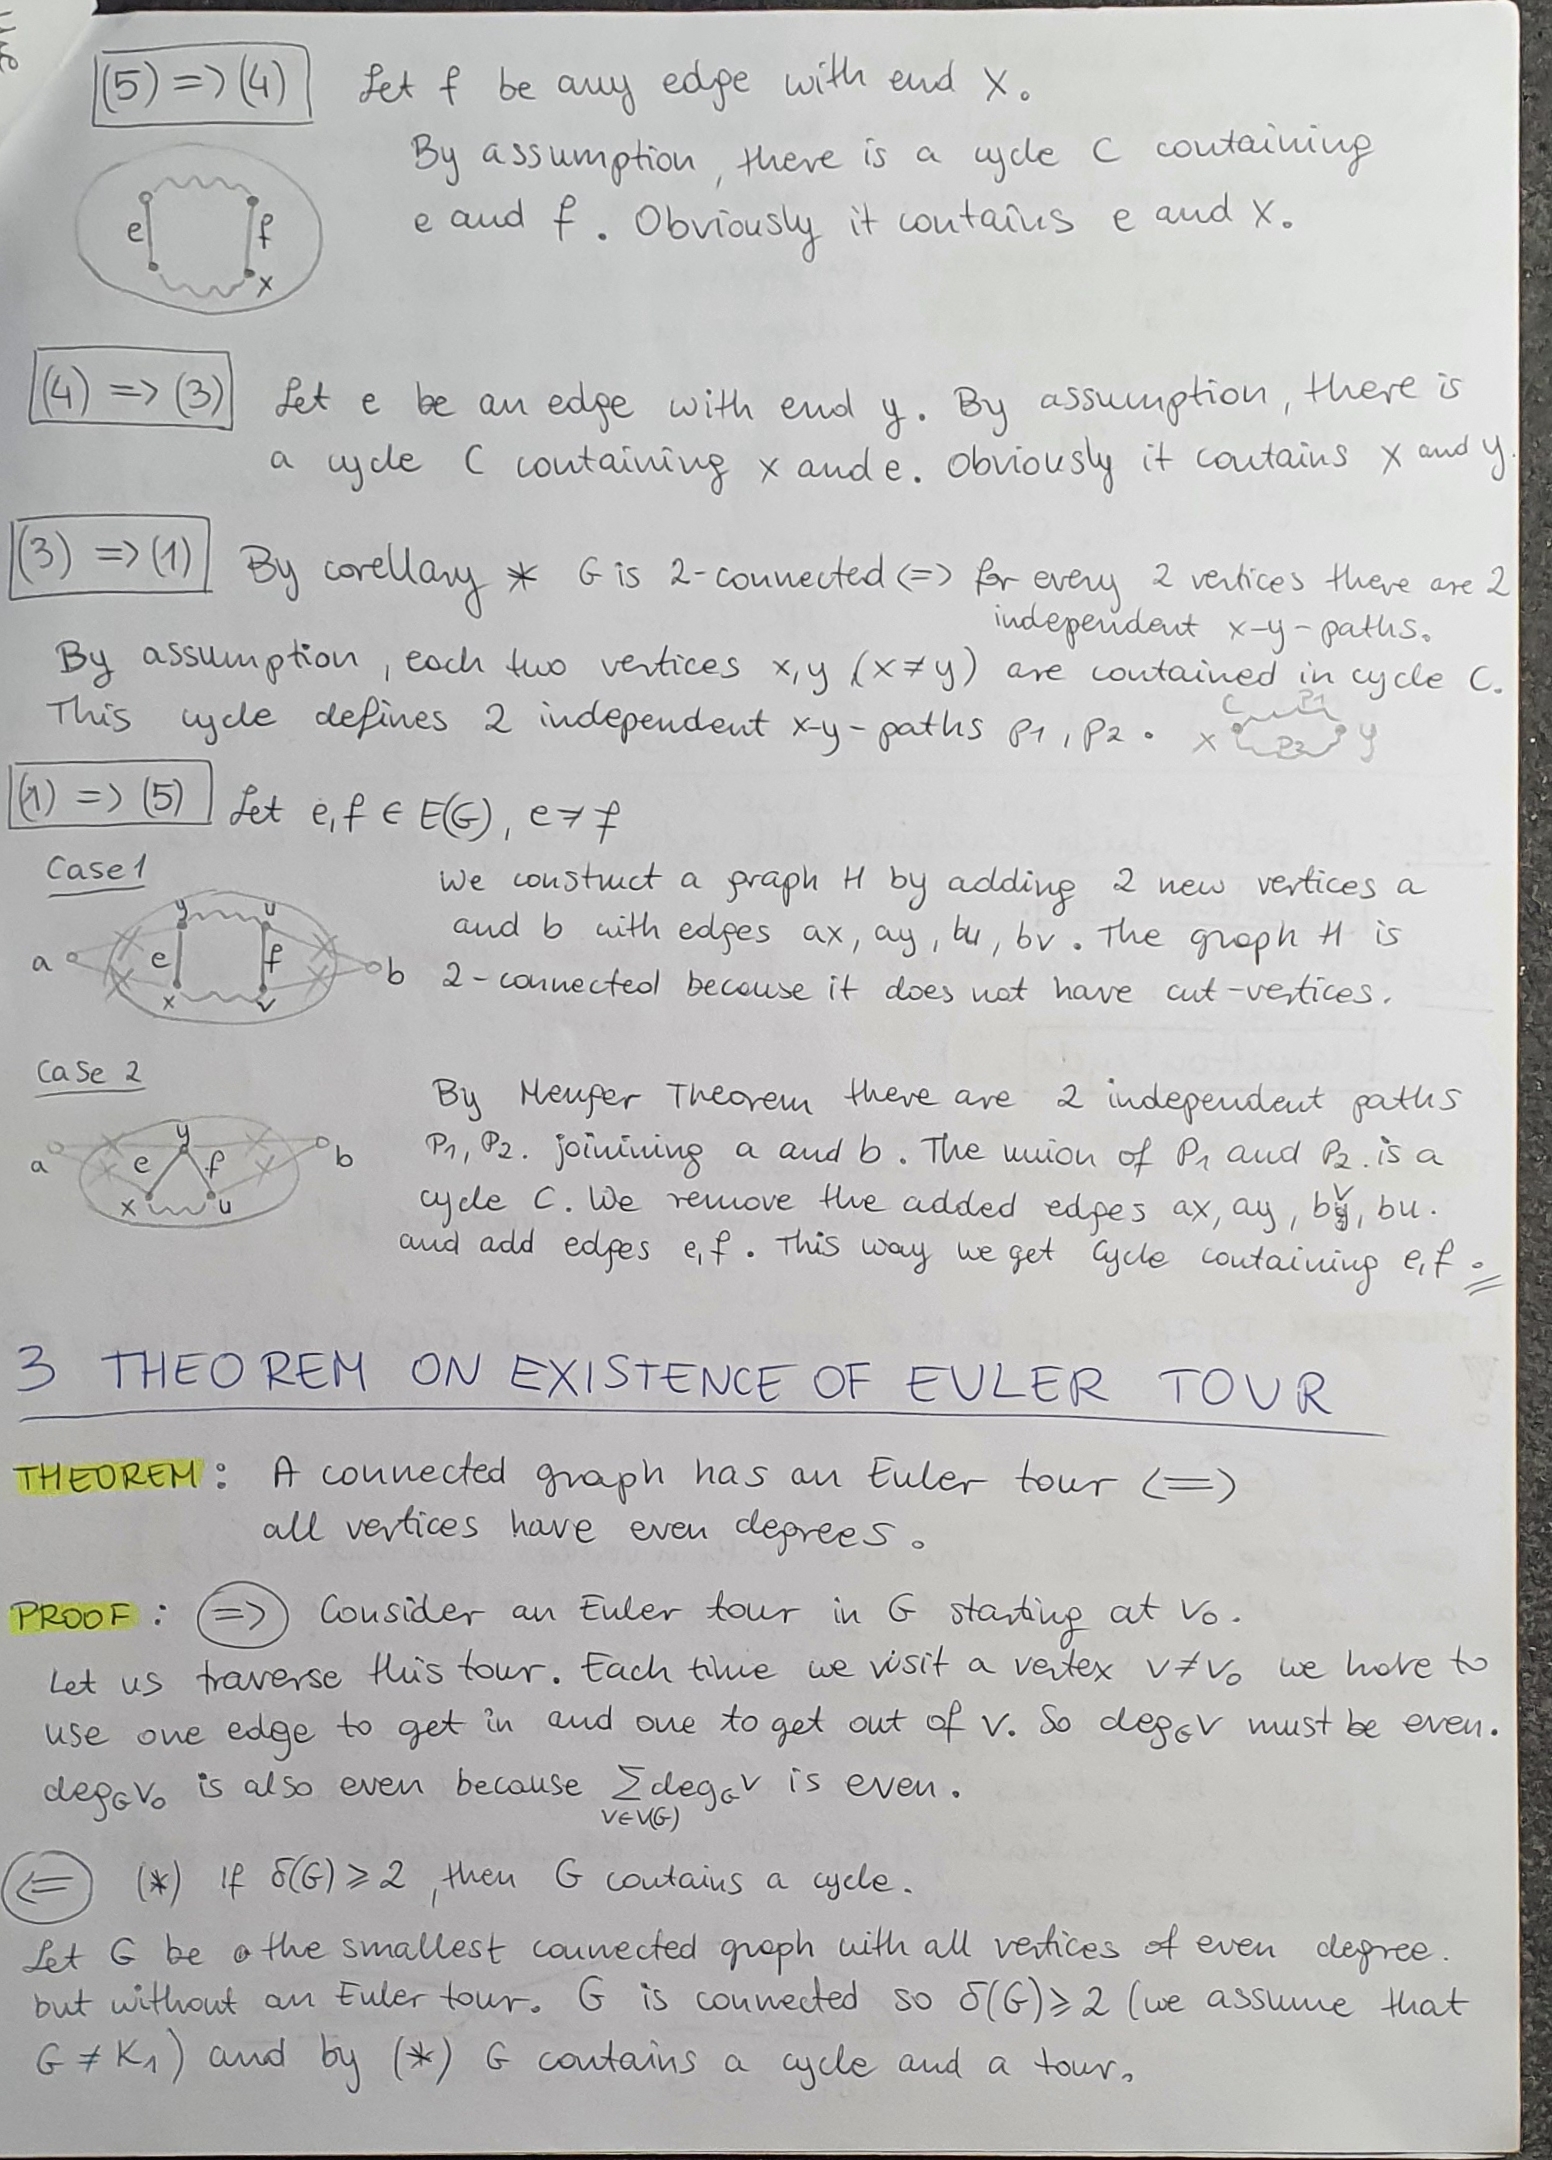 (5) => (4) Let f be any edge with end x.
By assumption, there is a cycle C containing
e and f. Obviously it contains e and x.
e f
x
(4) => (3) Let e be an edge with end y. By assumption, there is
a cycle C containing x and e. Obviously it contains x and y.
(3) => (1) By corellary * G is 2-connected <=> for every 2 vertices there are 2
independent x-y-paths.
By assumption, each two vertices x,y (x≠y) are contained in cycle C.
This cycle defines 2 independent x-y-paths P1, P2.
C P1
x P2 y
(1) => (5) Let e,f ∈ E(G), e≠f
Case 1
We construct a graph H by adding 2 new vertices a
and b with edges ax, ay, bu, bv. The graph H is
2-connected because it does not have cut-vertices.
y u
a e f b
x v
Case 2
By Menger Theorem there are 2 independent paths
P1, P2. joinining a and b. The union of P1 and P2. is a
cycle C. We remove the added edges ax, ay, bv, bu.
and add edges e,f. This way we get cycle containing e,f.
y
a e f b
x u
3 THEOREM ON EXISTENCE OF EULER TOUR
THEOREM: A connected graph has an Euler tour <=>
all vertices have even degrees.
PROOF: => Consider an Euler tour in G starting at v₀.
Let us traverse this tour. Each time we visit a vertex v≠v₀ we have to
use one edge to get in and one to get out of v. So deg_G v must be even.
deg_G v₀ is also even because ∑ deg_G v is even.
v∈V(G)
<= (*) If δ(G) ≥ 2, then G contains a cycle.
Let G be the smallest connected graph with all vertices of even degree.
but without an Euler tour. G is connected so δ(G) ≥ 2 (we assume that
G ≠ K₁) and by (*) G contains a cycle and a tour.